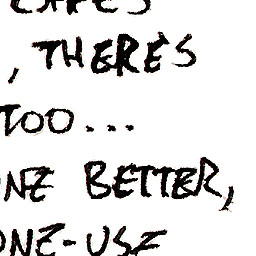 , THERE'S
TOO...
BETTER,
ONE-USE